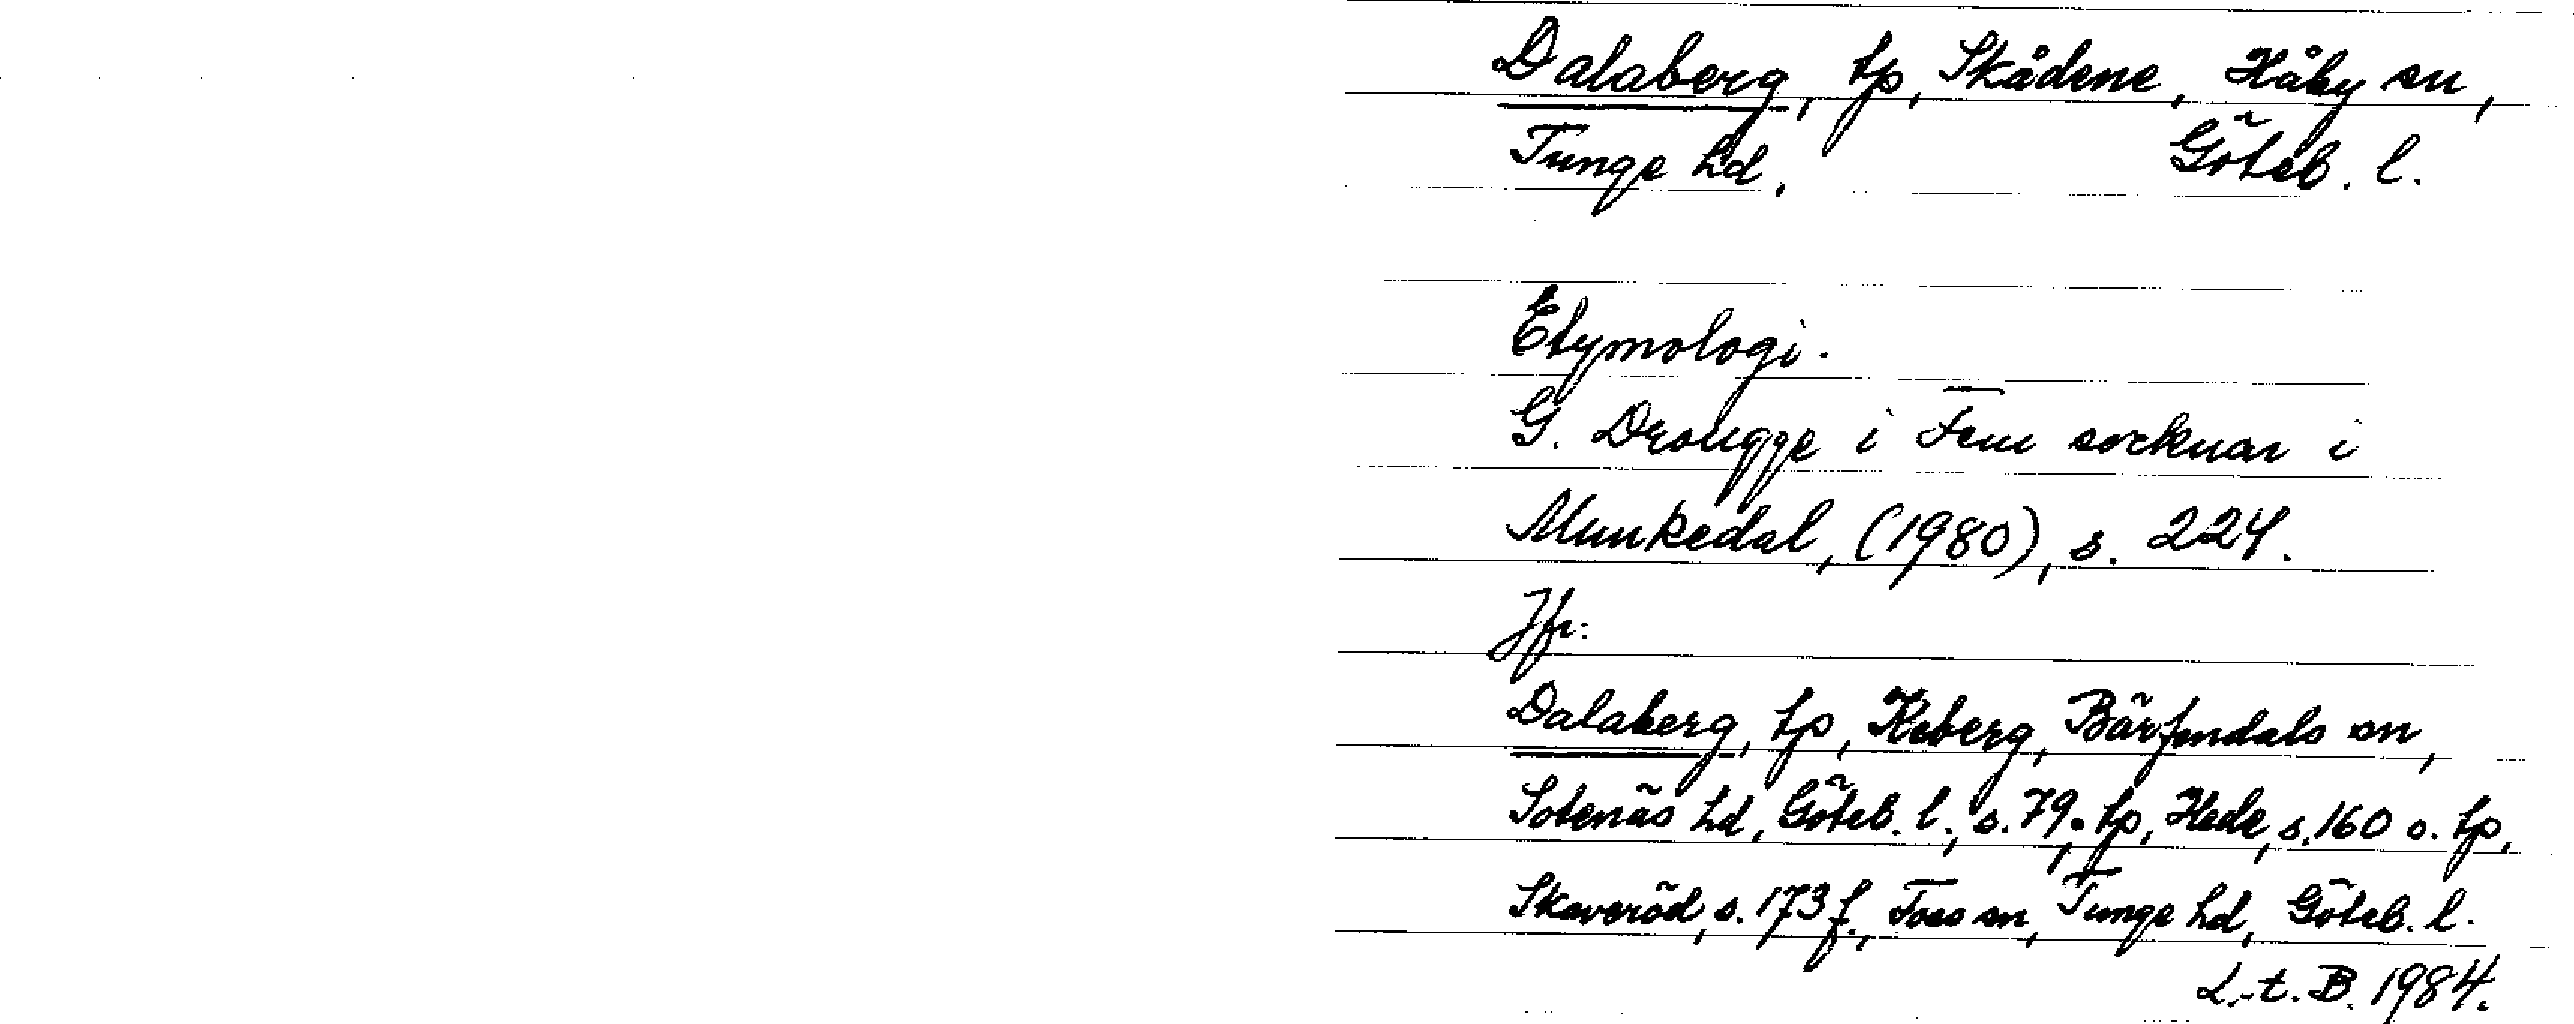 Dalaberg, tp, Skådene, Håby sn,
Tunge hd, Göteb. l.
Etymologi.
G. Drougge i Fem socknar i
Munkedal, (1980), s. 224.
Jfr:
Dalaberg, tp, Keberg, Bärfendals sn,
Sotenäs hd, Göteb. l., s. 79. tp, Hede, s. 160 o. tp,
Skaveröd, s. 173 f., Foss sn, Tunge hd, Göteb. l.
L-t. B. 1984.